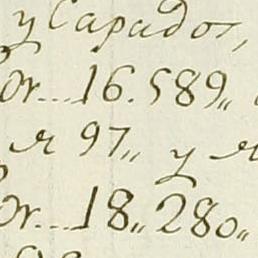 y Capados,
Or....16.589,,
a 97,, y a
Or....18,,280,,